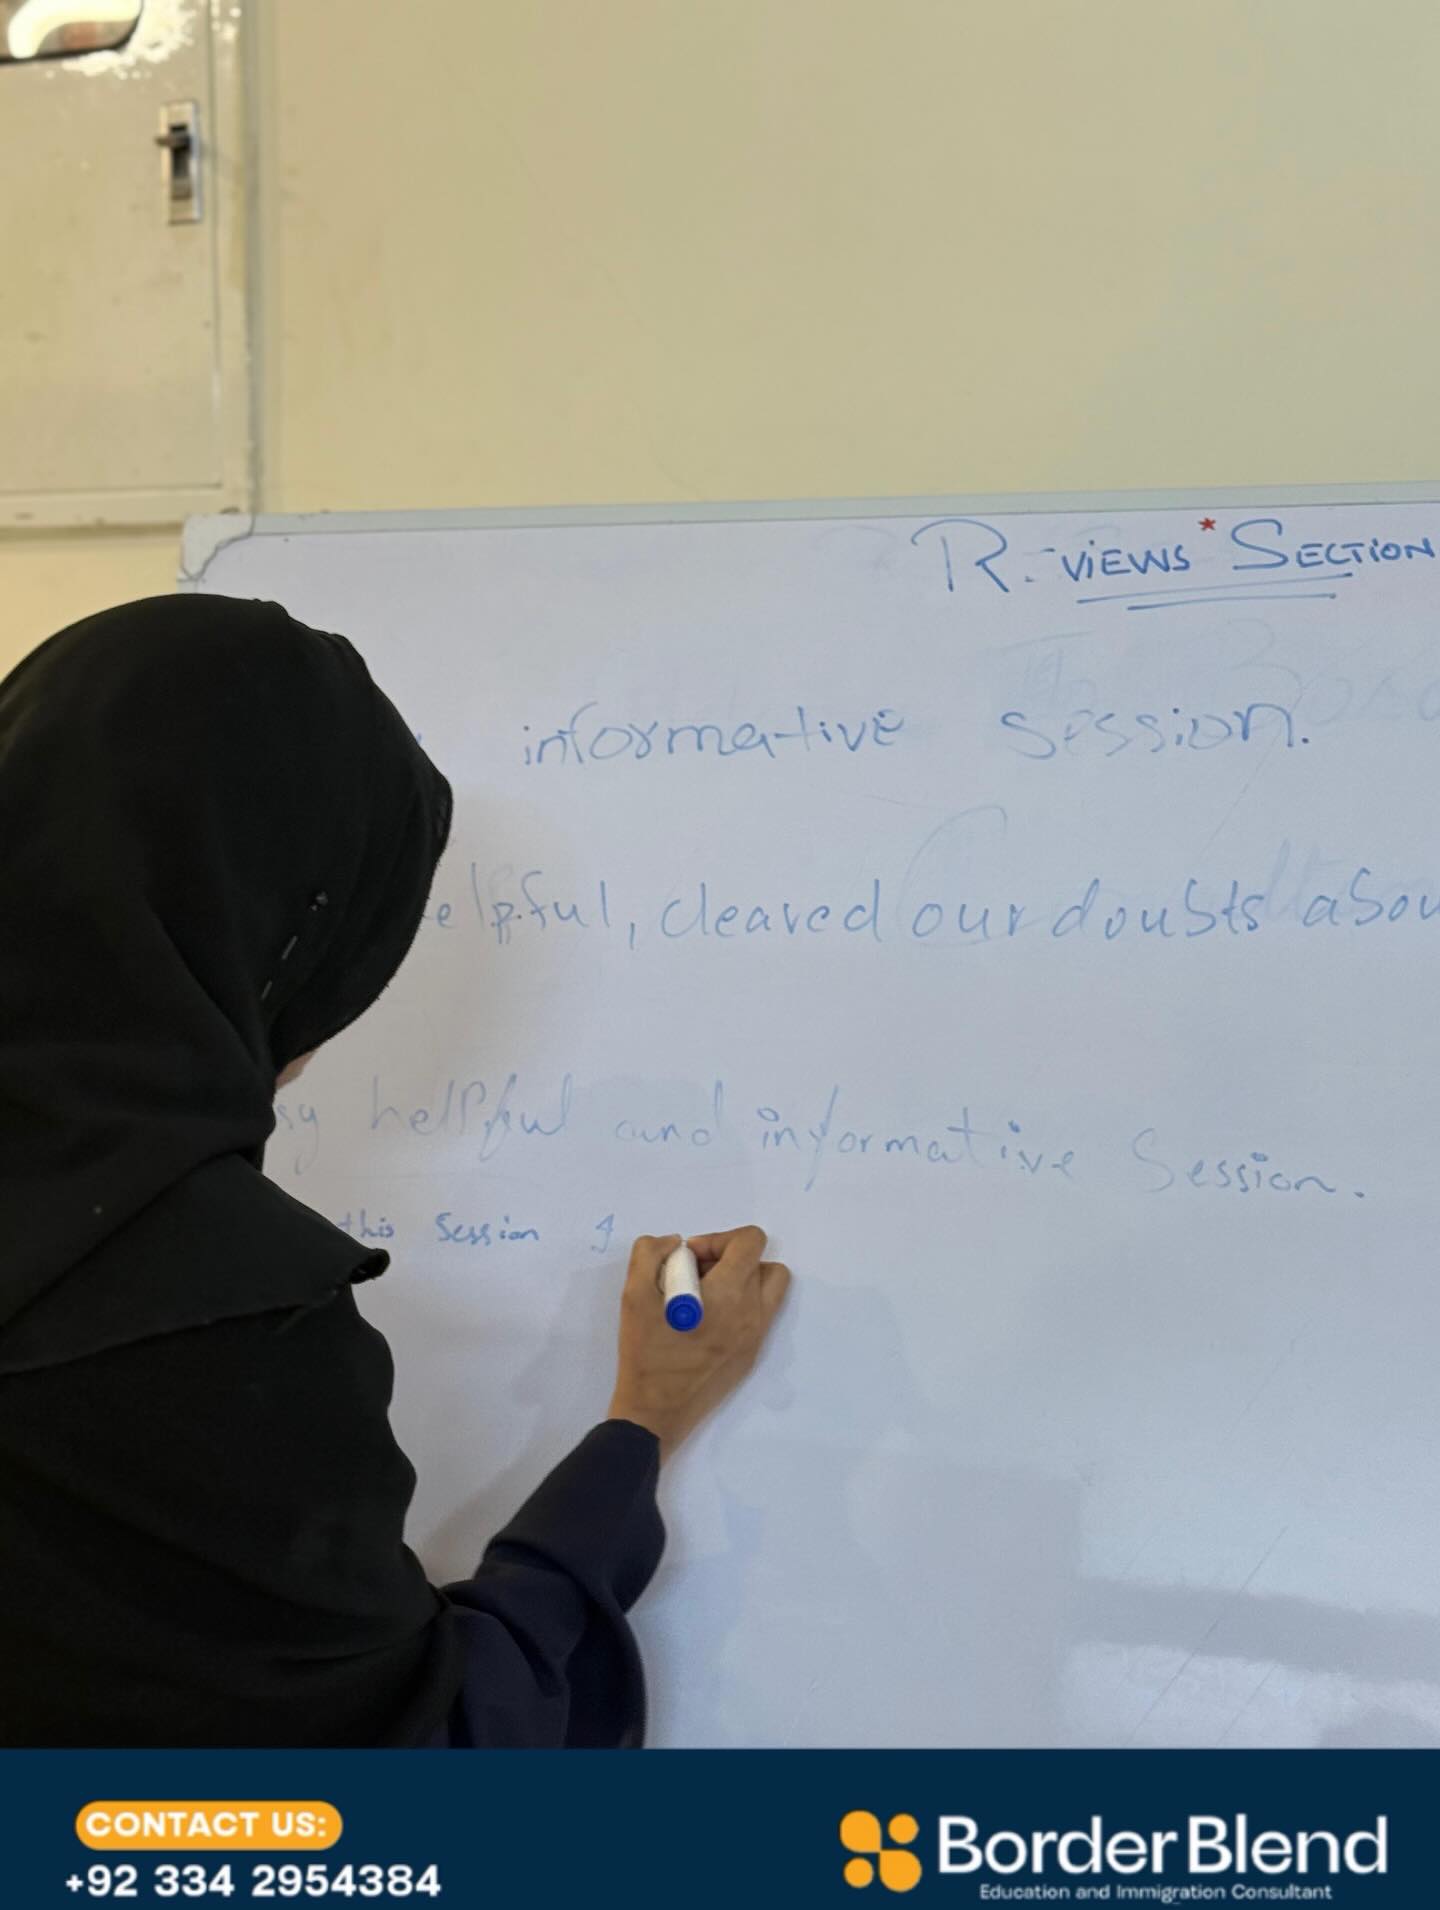 R.-VIEWS * SECTION
informative session.
elpful, cleared our doubts abou
helpful and informative Session.
this Session I
CONTACT US:
+92 334 2954384
BorderBlend
Education and Immigration Consultant